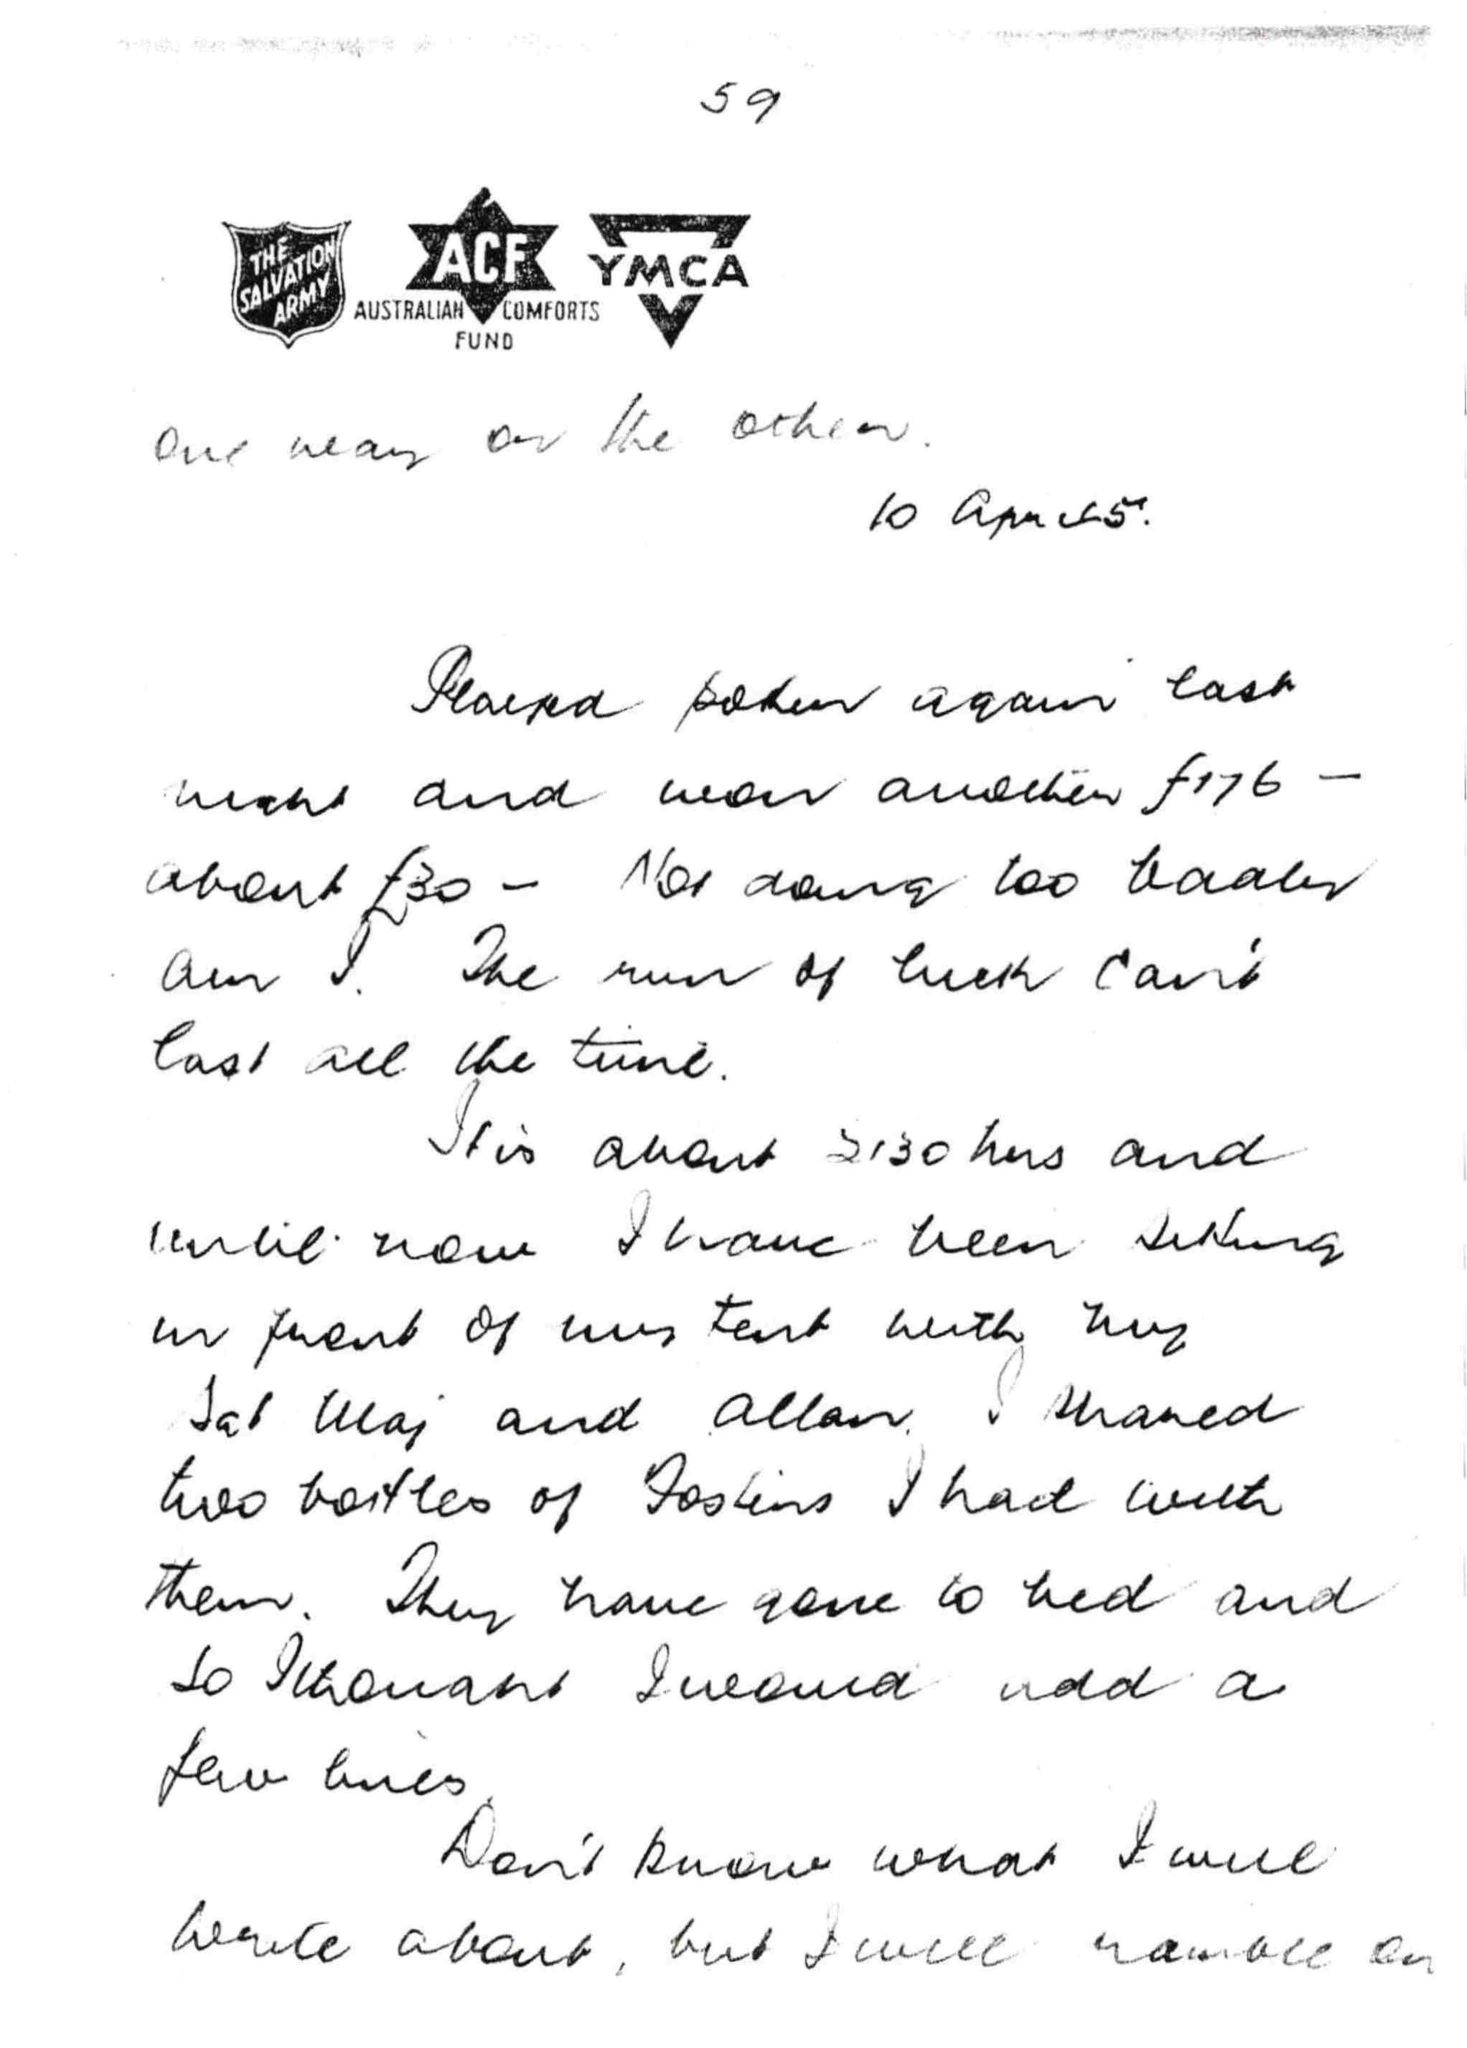 59
THE SALVATION ARMY
ACF
AUSTRALIAN COMFORTS FUND
YMCA
one way or the other.
10 Apr 45.
Played poker again last
night and won another f176 –
about £30 – Not doing too badly
am I. The run of luck can't
last all the time.
It is about 2130 hrs and
until now I have been sitting
in front of my tent with my
Sgt Maj and Allan. I shared
two bottles of Fosters I had with
them. They have gone to bed and
so I thought I would add a
few lines.
Don't know what I will
write about, but I will ramble on